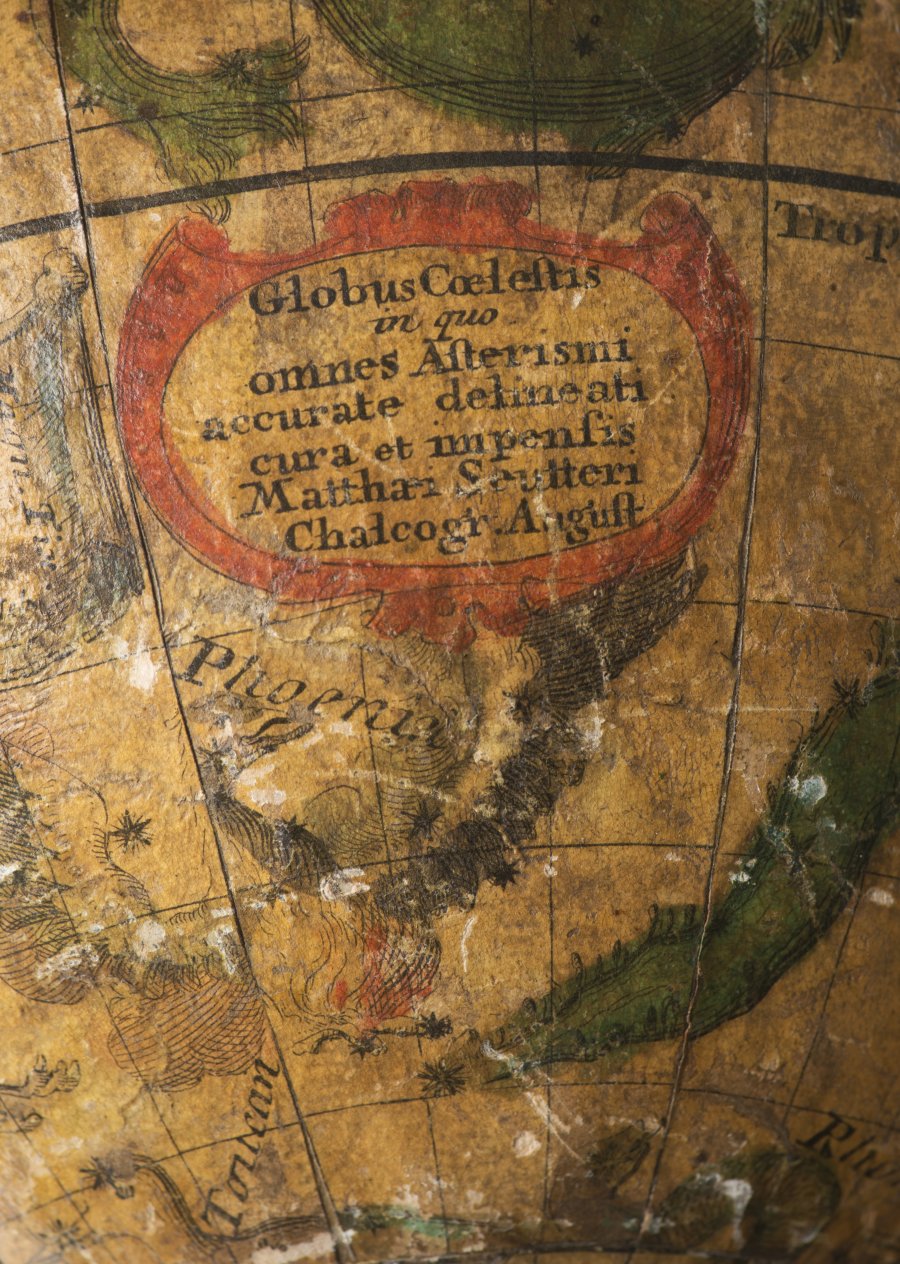 Trop
Globus Cœleſtis
in quo
omnes Aſterismi
accurate delineati
cura et impenſis
Matthæi Seutteri
Chalcogr. Auguſt.
Phoenix
Toucan